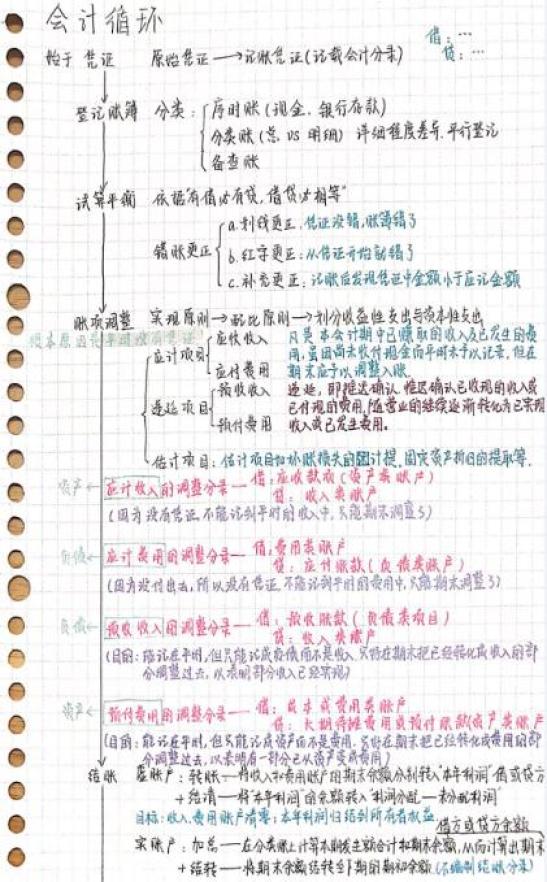 会计循环
始于 凭证 原始凭证→记账凭证(记载会计分录) 借:… 贷:…
登记账簿 分类: 序时账(现金、银行存款)
分类账(总 VS 明细) 详细程度差异.平行登记
备查账
试算平衡 依据"有借必有贷,借贷必相等"
错账更正 a.划线更正:凭证没错,账簿错了
b.红字更正:从凭证开始就错了
c.补充更正:记账后发现凭证中金额小于应记金额
账项调整 实现原则→配比原则→划分收益性支出与资本性支出
根本原因是平时没有凭证
应计项目 应收收入 凡是本会计期中已赚取的收入及已发生的费
应付费用 用,虽因尚未收付现金而平时未予以记录,但在
期末应予以调整入账.
递延项目 预收收入 递延,即推迟确认.推迟确认已收现的收入或
预付费用 已付现的费用,随营业的继续逐渐转化为已实现
收入或已发生费用.
估计项目:估计项目如坏账损失的计提,固定资产折旧的提取等.
资产← 应计收入的调整分录— 借:应收款项(资产类账户)
贷:收入类账户
(因为没有凭证,不能记到平时的收入中,只能期末调整了)
负债← 应计费用的调整分录— 借:费用类账户
贷:应付账款(负债类账户)
(因为没付出去,所以没有凭证,不能记到平时的费用中,只能期末调整了)
负债← 预收收入的调整分录— 借:预收账款(负债类项目)
贷:收入类账户
(目的:能记在平时,但只能记成负债而不是收入,只好在期末把已经转化成收入的部
分调整过去,以表明部分收入已经实现)
资产← 预付费用的调整分录— 借:成本或费用类账户
贷:长期待摊费用或预付账款(资产类账户)
(目的:能记在平时,但只能记成资产而不是费用,只好在期末把已经转化成费用的部
分调整过去,以表明有一部分已从资产变成费用)
结账 虚账户:转账—将收入和费用账户的期末余额分别转入"本年利润"借或贷方
+结清—将"本年利润"的余额转入"利润分配—未分配利润"
目标:收入、费用账户清零;本年利润归结到所有者权益
借方或贷方余额
实账户:加总—在分类账上计算本期发生额合计和期末余额,从而计算出期末
+结转—将期末余额结转至下期的期初余额(不编制结账分录)